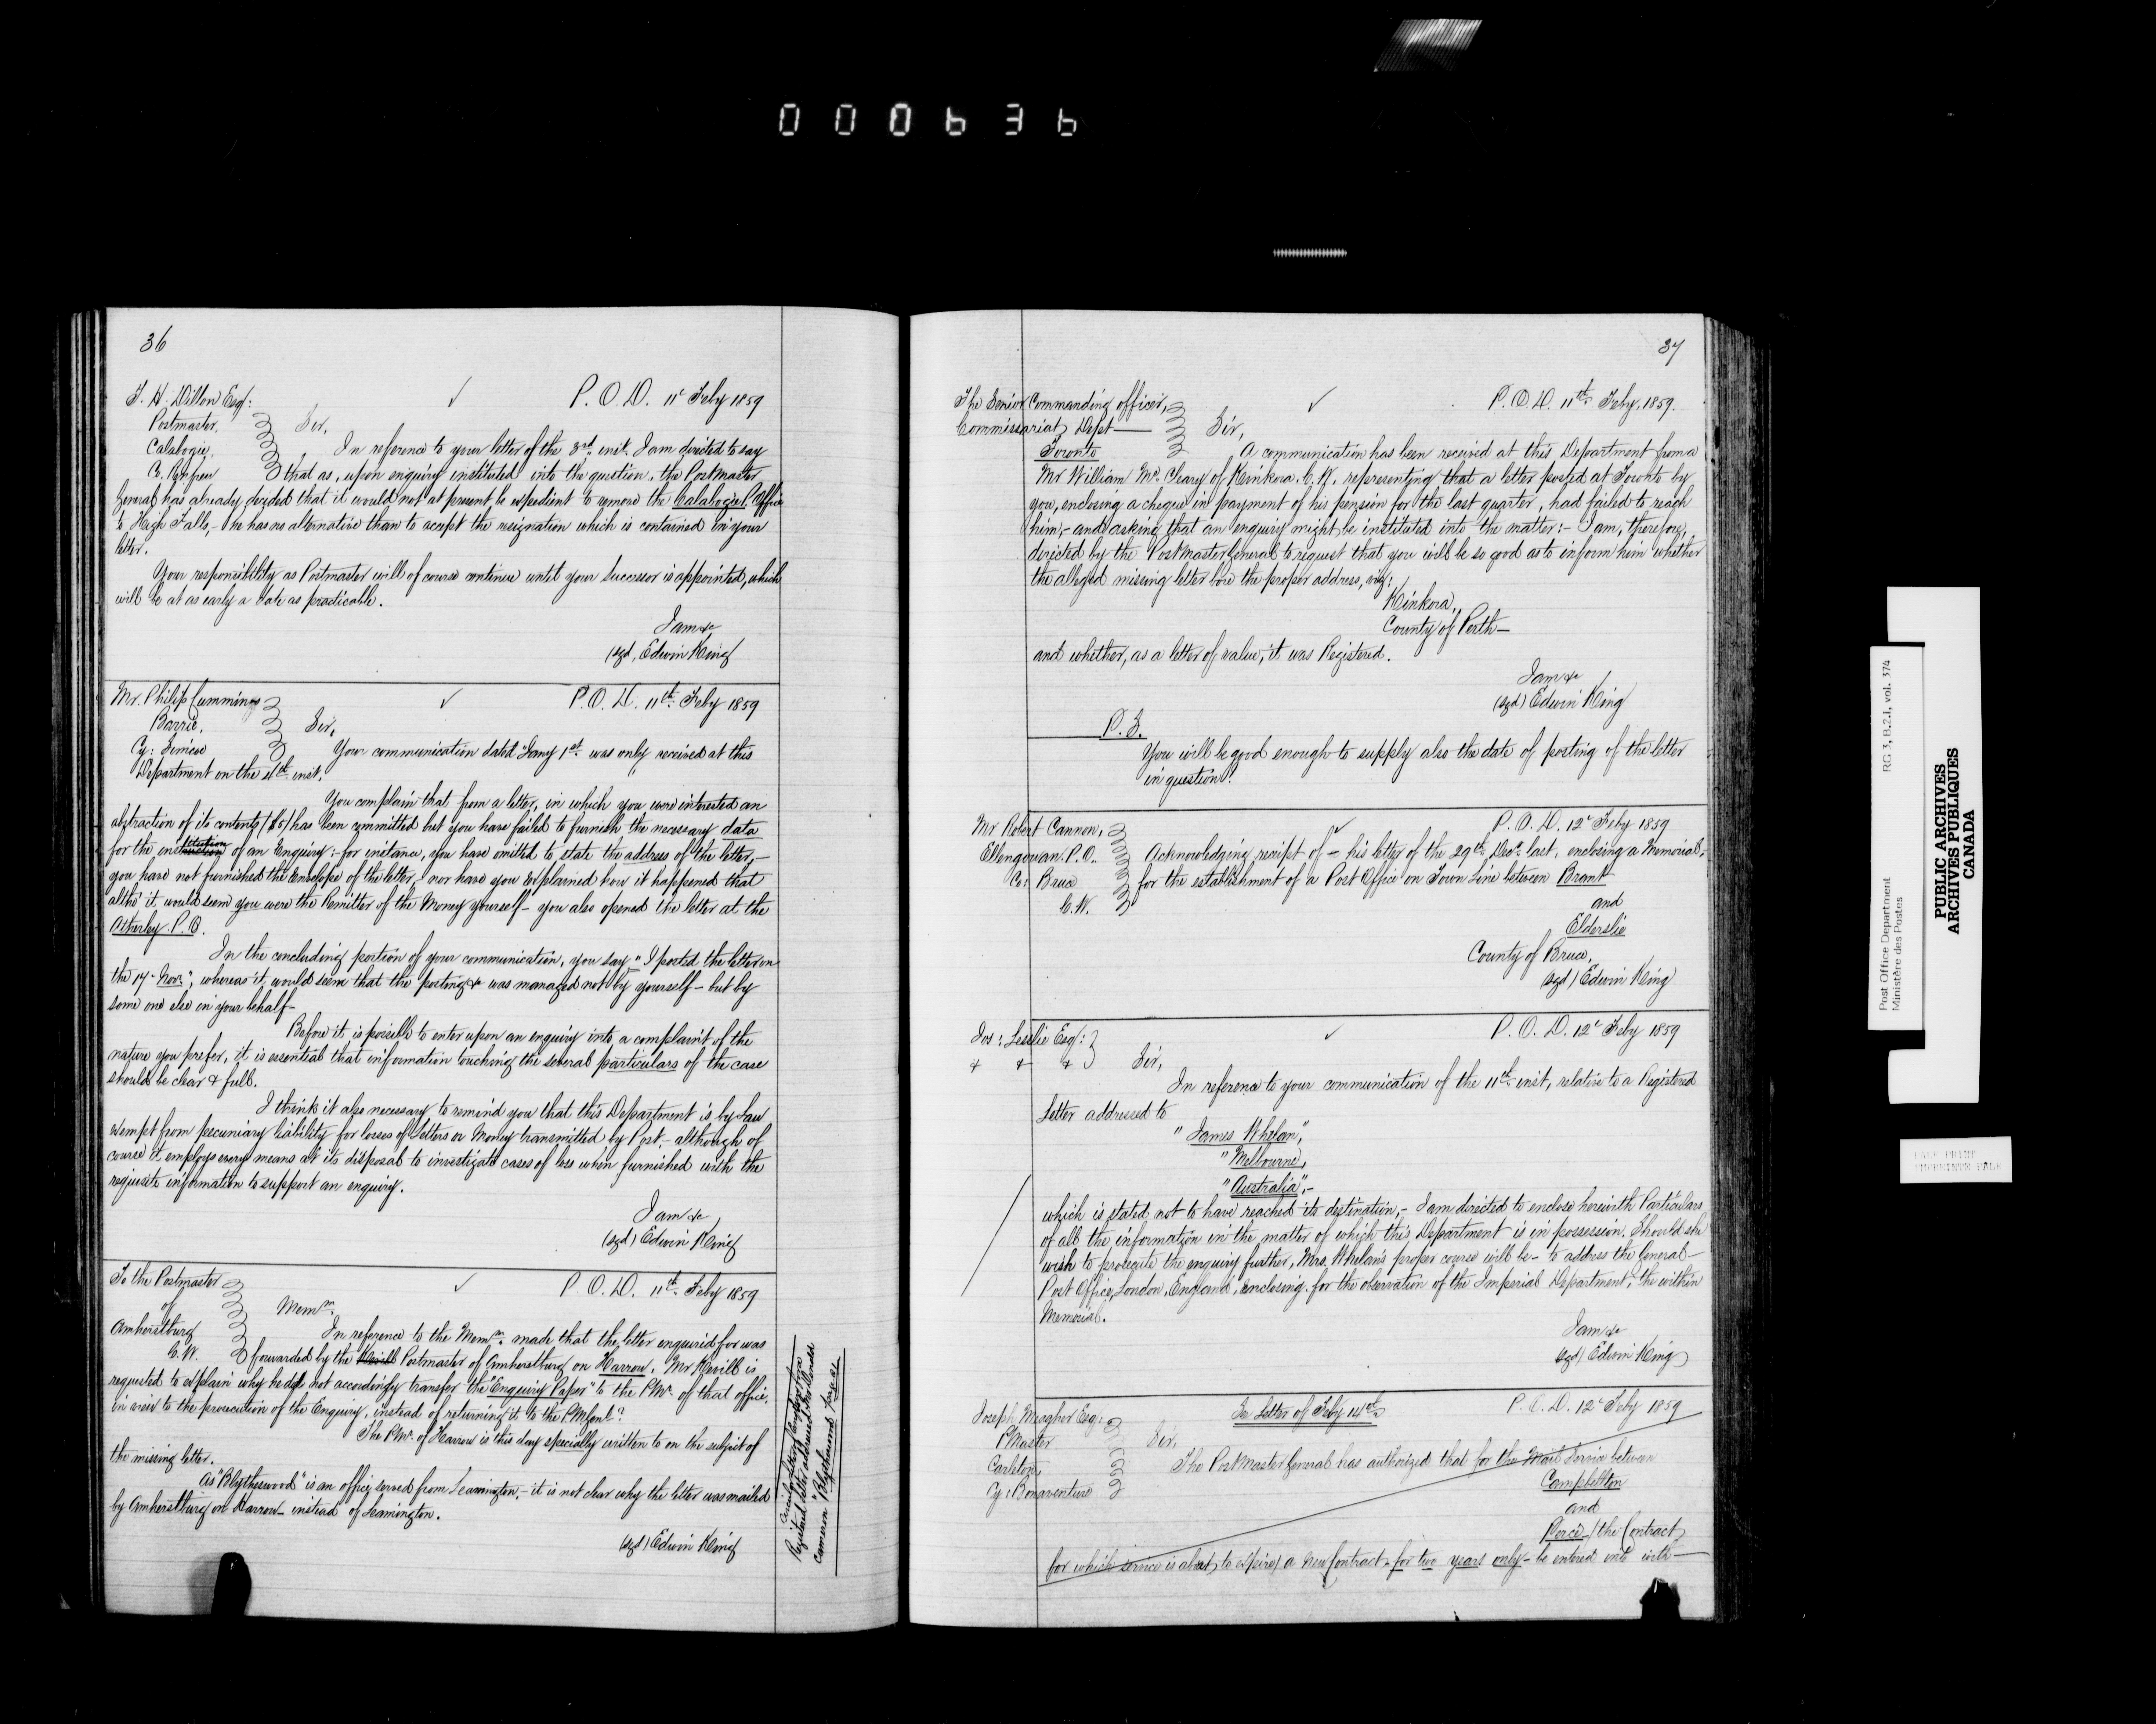 000636
36
J. H. Dillon Esq:
Postmaster,
Calabogie,
Co. Renfrew
P. O. D. 11th Feby 1859
Sir,
In reference to your letter of the 3rd inst. I am directed to say
that as, upon enquiry instituted into the question, the PostMaster
General has already decided that it would not at present be expedient to remove the Calabogie Office
to High Falls, - he has no alternative than to accept the resignation which is contained in your
letter.
Your responsibility as Postmaster will of course continue until your successor is appointed, which
will be at as early a date as practicable.
I am &c
(sgd) Edwin King
Mr. Philip Cummings
Barrie,
Cy: Simcoe
P. O. D. 11th Feby 1859
Sir,
Your communication dated Jany 1st was only received at this
Department on the 4th inst.
You complain that from a letter, in which you were interested an
abstraction of its contents ($5) has been committed but you have failed to furnish the necessary data
for the institution of an Enquiry: - for instance, you have omitted to state the address of the letter, -
you have not furnished the Envelope of the letter, - nor have you explained how it happened that
altho' it would seem you were the Remitter of the Money yourself - you also opened the letter at the
Atherley P. O.
In the concluding portion of your communication, you say "I posted the letter on
the 17 Novr", whereas it would seem that the posting &c was managed not by yourself - but by
some one else in your behalf -
Before it is possible to enter upon an enquiry into a complaint of the
nature you prefer, it is essential that information touching the several particulars of the case
should be clear & full.
I think it also necessary to remind you that this Department is by Law
exempt from pecuniary liability for losses of Letters or Money transmitted by Post, - although of
course it employs every means at its disposal to investigate cases of loss when furnished with the
requisite information to support an enquiry.
I am &c
(sgd) Edwin King
To the Postmaster
of
Amherstburg
C.W.
P. O. D. 11th Feby 1859
Memm.
In reference to the Memm. made that the letter enquired for was
forwarded by the Postmaster of Amherstburg on Harrow, Mr Kevill is
requested to explain why he did not accordingly transfer the "Enquiry Paper" to the P.Mr. of that office,
in view to the prosecution of the Enquiry, instead of returning it to the PMGenl?
The P.Mr. of Harrow is this day specially written to on the subject of
the missing letter.
As "Blytheswood" is an office served from Leamington, - it is not clear why the letter was mailed
by Amherstburg on Harrow - instead of Leamington.
(sgd) Edwin King
Registered letter addressed
Cameron "Blytheswood"
37
The Senior Commanding officer,
Commissariat Dept -
Toronto
P. O. D. 11th Feby, 1859.
Sir,
A communication has been received at this Department from a
Mr William Mc Cleary of Kinkora, C. W. representing that a letter posted at Toronto by
you, enclosing a cheque in payment of his pension for the last quarter, had failed to reach
him, - and asking that an enquiry might be instituted into the matter: - I am, therefore,
directed by the PostMaster General to request that you will be so good as to inform him whether
the alleged missing letter bore the proper address, viz:
Kinkora,
County of Perth -
and whether, as a letter of value, it was Registered.
I am &c
(sgd) Edwin King
P. S.
You will be good enough to supply also the date of posting of the letter
in question.
Mr Robert Cannon,
Ellengowan. P.O.
Co: Bruce
C. W.
P. O. D. 12th Feby 1859
Acknowledging receipt of - his letter of the 29th Decr last, enclosing a Memorial,
for the establishment of a Post Office on Town Line between Brant
and
Elderslie
County of Bruce,
(sgd) Edwin King
Jos: Leslie Esq:
& & &
P. O. D. 12th Feby 1859
Sir,
In reference to your communication of the 11th inst, relative to a Registered
Letter addressed to
"James Whelan",
"Melbourne,
"Australia", -
which is stated not to have reached its destination, - I am directed to enclose herewith Particulars
of all the information in the matter of which this Department is in possession. Should she
wish to prosecute the enquiry further, Mrs. Whelan's proper course will be - to address the General
Post Office, London, England, enclosing, for the observation of the Imperial Department, the within
Memorial.
I am &c
(sgd) Edwin King
Joseph Meagher Esq:
PMaster
Carleton,
Cy: Bonaventure
See Letter of Feby 14th
P. O. D. 12th Feby 1859
Sir,
The PostMaster General has authorized that for the Mail Service between
Campbellton
and
Percé (the Contract
for which service is about to expire) a new Contract - for two years only - be entered into with -
Post Office Department
Ministère des Postes
RG 3, B.2.1, vol. 374
PUBLIC ARCHIVES
ARCHIVES PUBLIQUES
CANADA